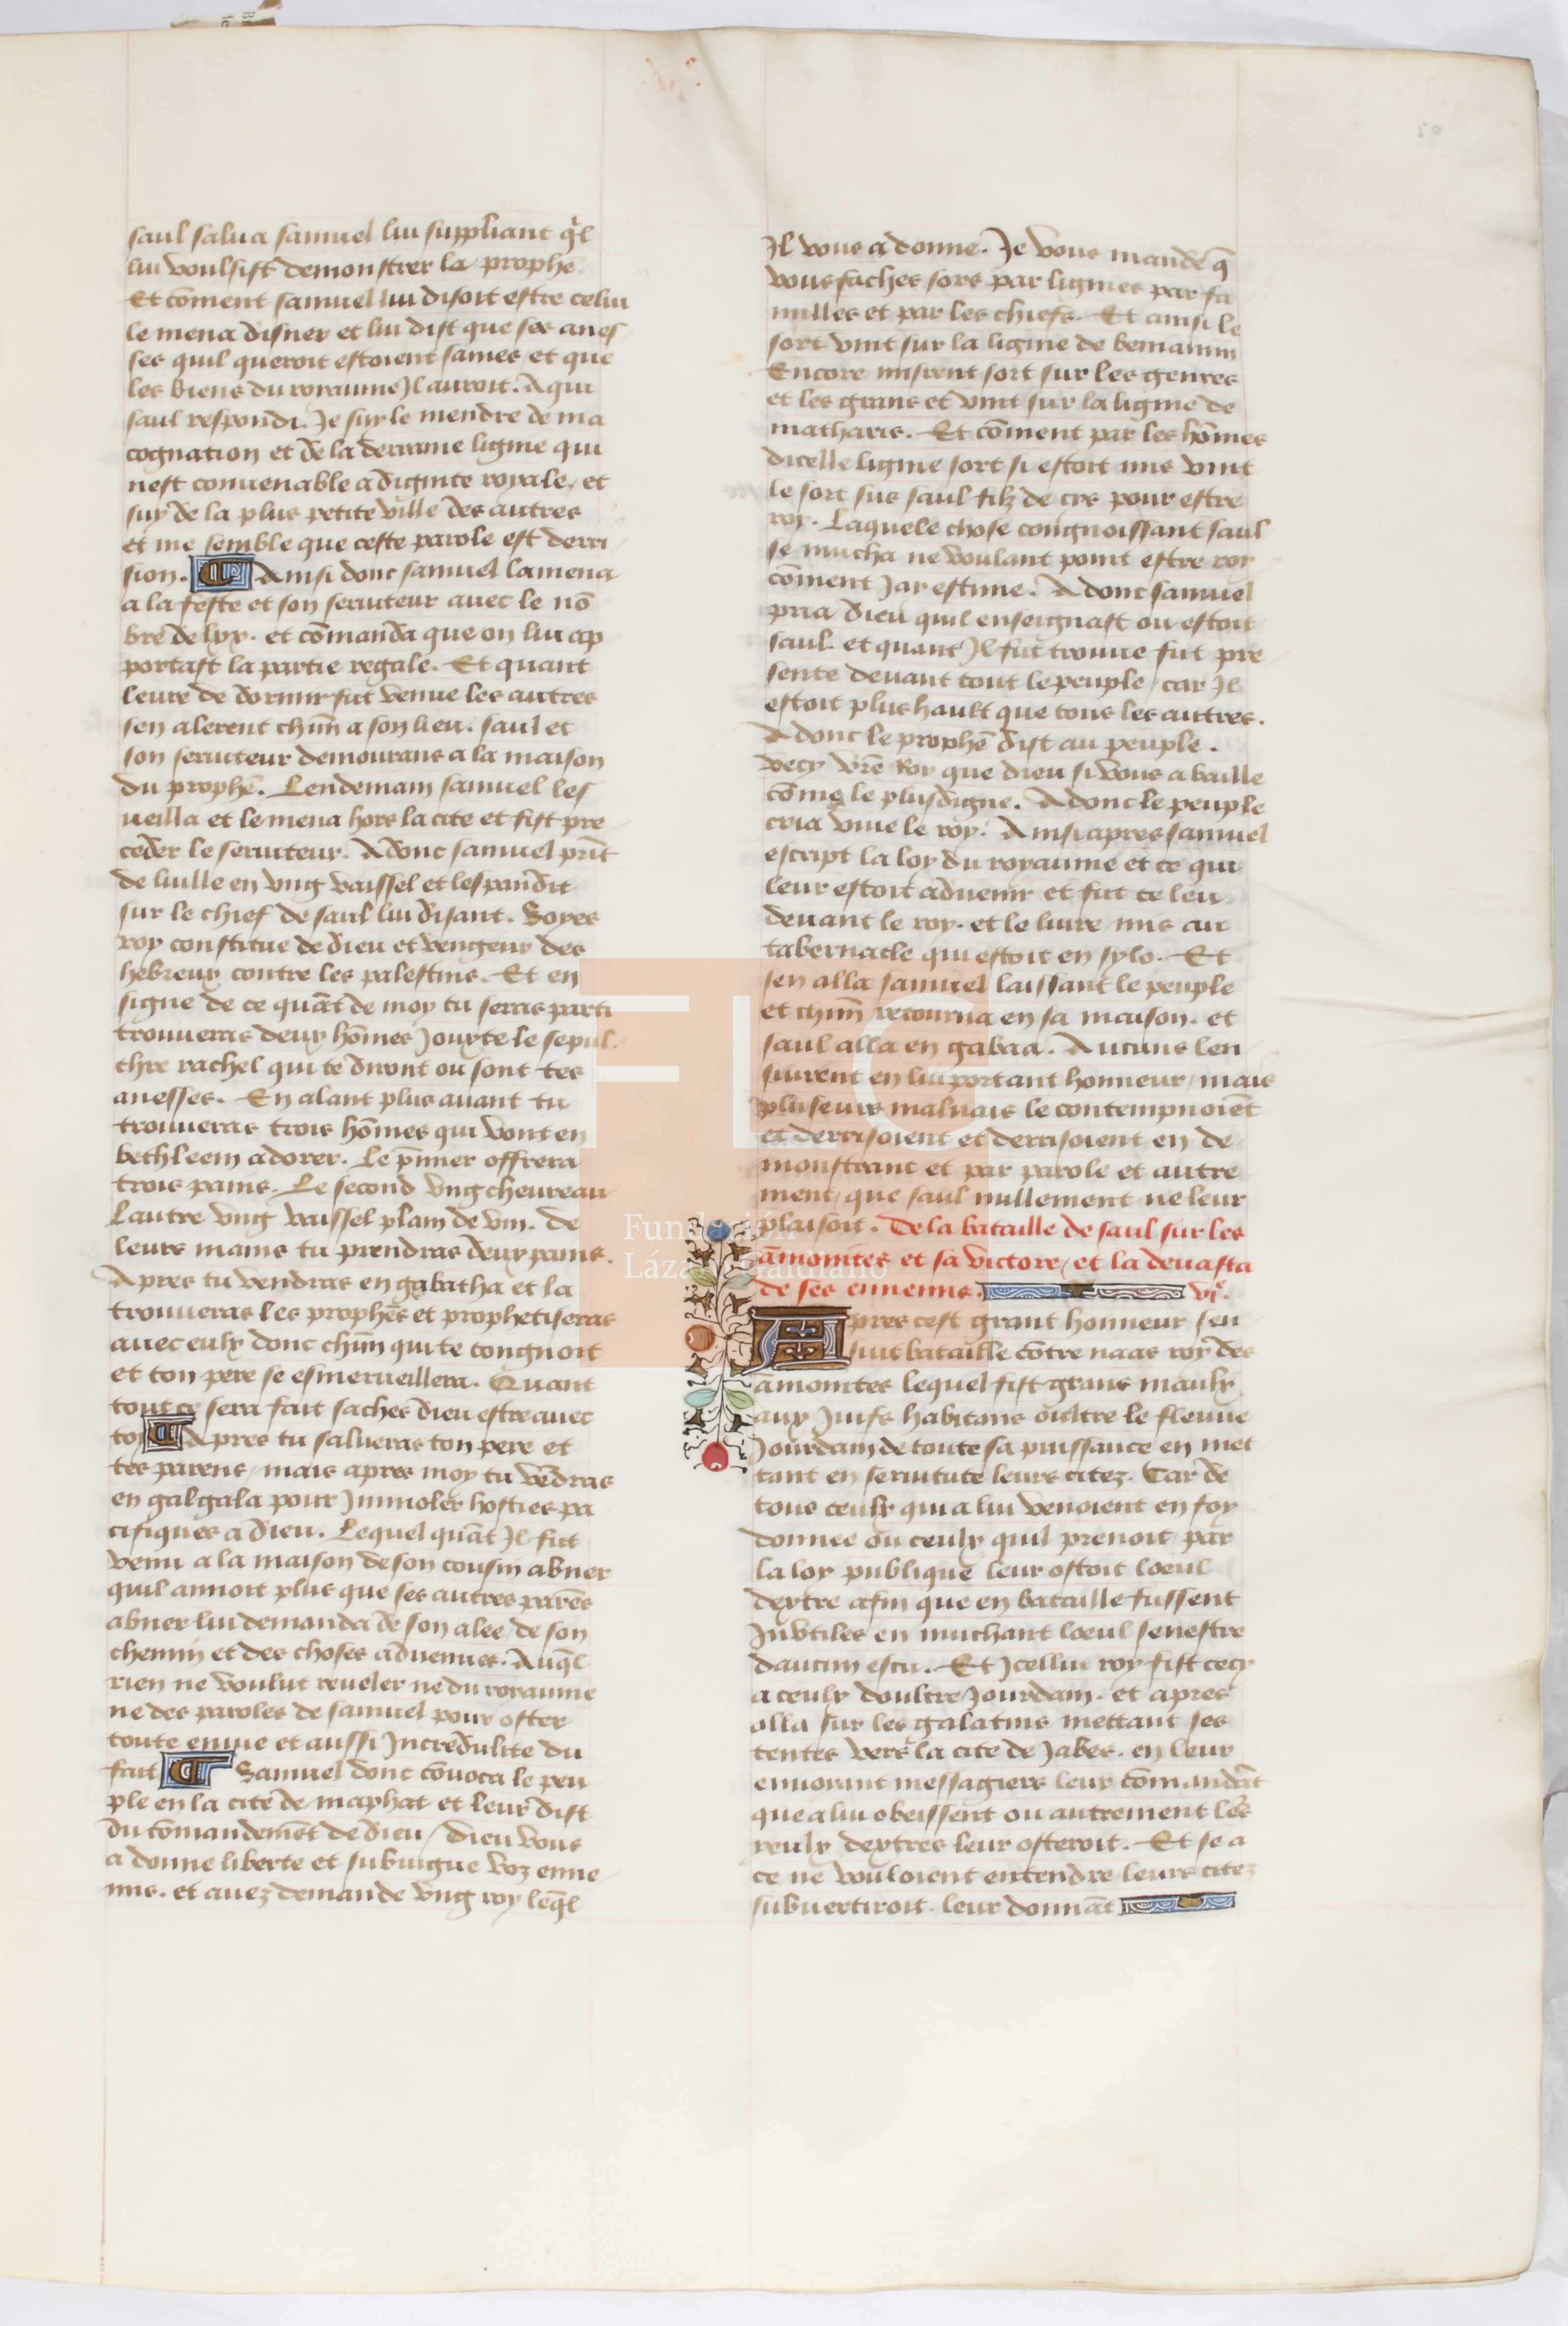 saul salua samuel lui suppliant q̃l
lui voulsist demonstrer la prophe
Et cõment samuel lui disoit estre celui
le mena disner et lui dist que ses anes
ses quil queroit estoient saines et que
les biens du royaume Jl auroit. A qui
saul respondi. Je suy le mendre de ma
cognation et de la derraine lignie qui
nest conuenable a dignite royale, et
suy de la plus petite ville des autres
et me semble que ceste parole est derri
sion. ¶ Ainsi donc samuel lamena
a la feste et son seruiteur auec le nõ
bre de lxx. et cõmanda que on lui ap
portast la partie regale. Et quant
leure de dormir fut venue les autres
sen alerent chũn a son lieu. saul et
son seruiteur demourans a la maison
du prophẽ. Lendemain samuel les
ueilla et le mena hors la cite et fist pre
ceder le seruiteur. Adonc samuel prĩt
de luille en vng vaissel et lespandit
sur le chief de saul lui disant. Soyes
roy constitue de dieu et vengeur des
hebreux contre les palestins. Et en
signe de ce quãt de moy tu seras parti
trouueras deux hõmes Jouxte le sepul
chre rachel qui te diront ou sont tes
anesses. En alant plus auant tu
trouueras trois hõmes qui vont en
bethleem adorer. Le p̃mier offrera
trois pains. Le second vng cheureau
Lautre vng vaissel plain de vin. de
leurs mains tu prendras deux pains.
Apres tu vendras en gabatha et la
trouueras les prophẽs et prophetiseras
auec eulx donc chũn qui te congnoit
et ton pere se esmerueillera. Quant
tout ce sera fait saches dieu estre auec
toy ¶ Apres tu salueras ton pere et
tes parens, mais apres moy tu vẽdras
en galgala pour Jmmoler hosties pa
cifiques a dieu. Lequel quãt Jl fut
venu a la maison de son cousin abner
quil aimoit plus que ses autres parẽs
abner lui demanda de son alee, de son
chemin et des choses aduenues. Auq̃l
rien ne voulut reueler ne du royaume
ne des paroles de samuel pour oster
toute enuie et aussi Jncredulite du
fait ¶ Samuel donc cõuoca le peu
ple en la cite de maphat et leur dist
du cõmandemẽt de dieu, dieu vous
a donne liberte et subiugue voz enne
mis. et auez demande vng roy leq̃l
Jl vous a donne. Je vous mande q̃
vous faches sors par lignies par fa
milles et par les chiefs. Et ainsi le
sort vint sur la lignie de beniamin
Encore misrent sort sur les genres
et les grans et vint sur la lignie de
matharis. Et cõment par les hõmes
dicelle lignie sort si estoit mis vint
le sort sus saul filz de cys pour estre
roy. Laquele chose congnoissant saul
se mucha ne voulant point estre roy
cõment Jay estime. Adonc samuel
pria dieu quil enseignast ou estoit
saul. et quant Jl fut trouue fut pre
sente deuant tout le peuple, car Jl
estoit plus hault que tous les autres.
Adonc le prophẽ dist au peuple.
vecy vr̃e Roy que dieu si vous a baille
cõme le plus digne. Adonc le peuple
cria viue le roy. Ainsi apres samuel
escript la loy du royaume et ce qui
leur estoit aduenir et fut ce leu
deuant le roy. et le liure mis au
tabernacle qui estoit en sylo. Et
sen alla samuel laissant le peuple
et chũn retourna en sa maison. et
saul alla en gabaa. Aucuns len
suirent en lui portant honneur, mais
pluseurs maluais le contempnoiẽt
et derrisoient et derrisoient en de
monstrant et par parole et autre
ment, que saul nullement ne leur
plaisoit. De la bataille de saul sur les
amonites et sa victore, et la deuasta
de ses ennemis. vi^e.
Apres cest grant honneur sen
suit bataille cõtre naas roy des
amonites lequel fist grans maulx
aux Juifs habitans oultre le fleuue
Jourdain de toute sa puissance en met
tant en seruitute leurs citez. Car de
tous ceulx qui a lui venoient en foy
donnee ou ceulx quil prenoit par
la loy publique leur ostoit loeul
dextre afin que en bataille fussent
Jnutiles en muchant loeul senestre
daucun escu. Et Jcellui roy fist cecy
a ceulx doultre Jourdain. et apres
alla sur les galatins mettant ses
tentes vers la cite de Jabes. en leur
enuoiant messagiers leur cõmandãt
que a lui obeissent ou autrement les
yeulx dextres leur osteroit. Et se a
ce ne vouloient entendre leurs citez
subuertiroit. leur donnãt
Fundación
Lázaro Galdiano